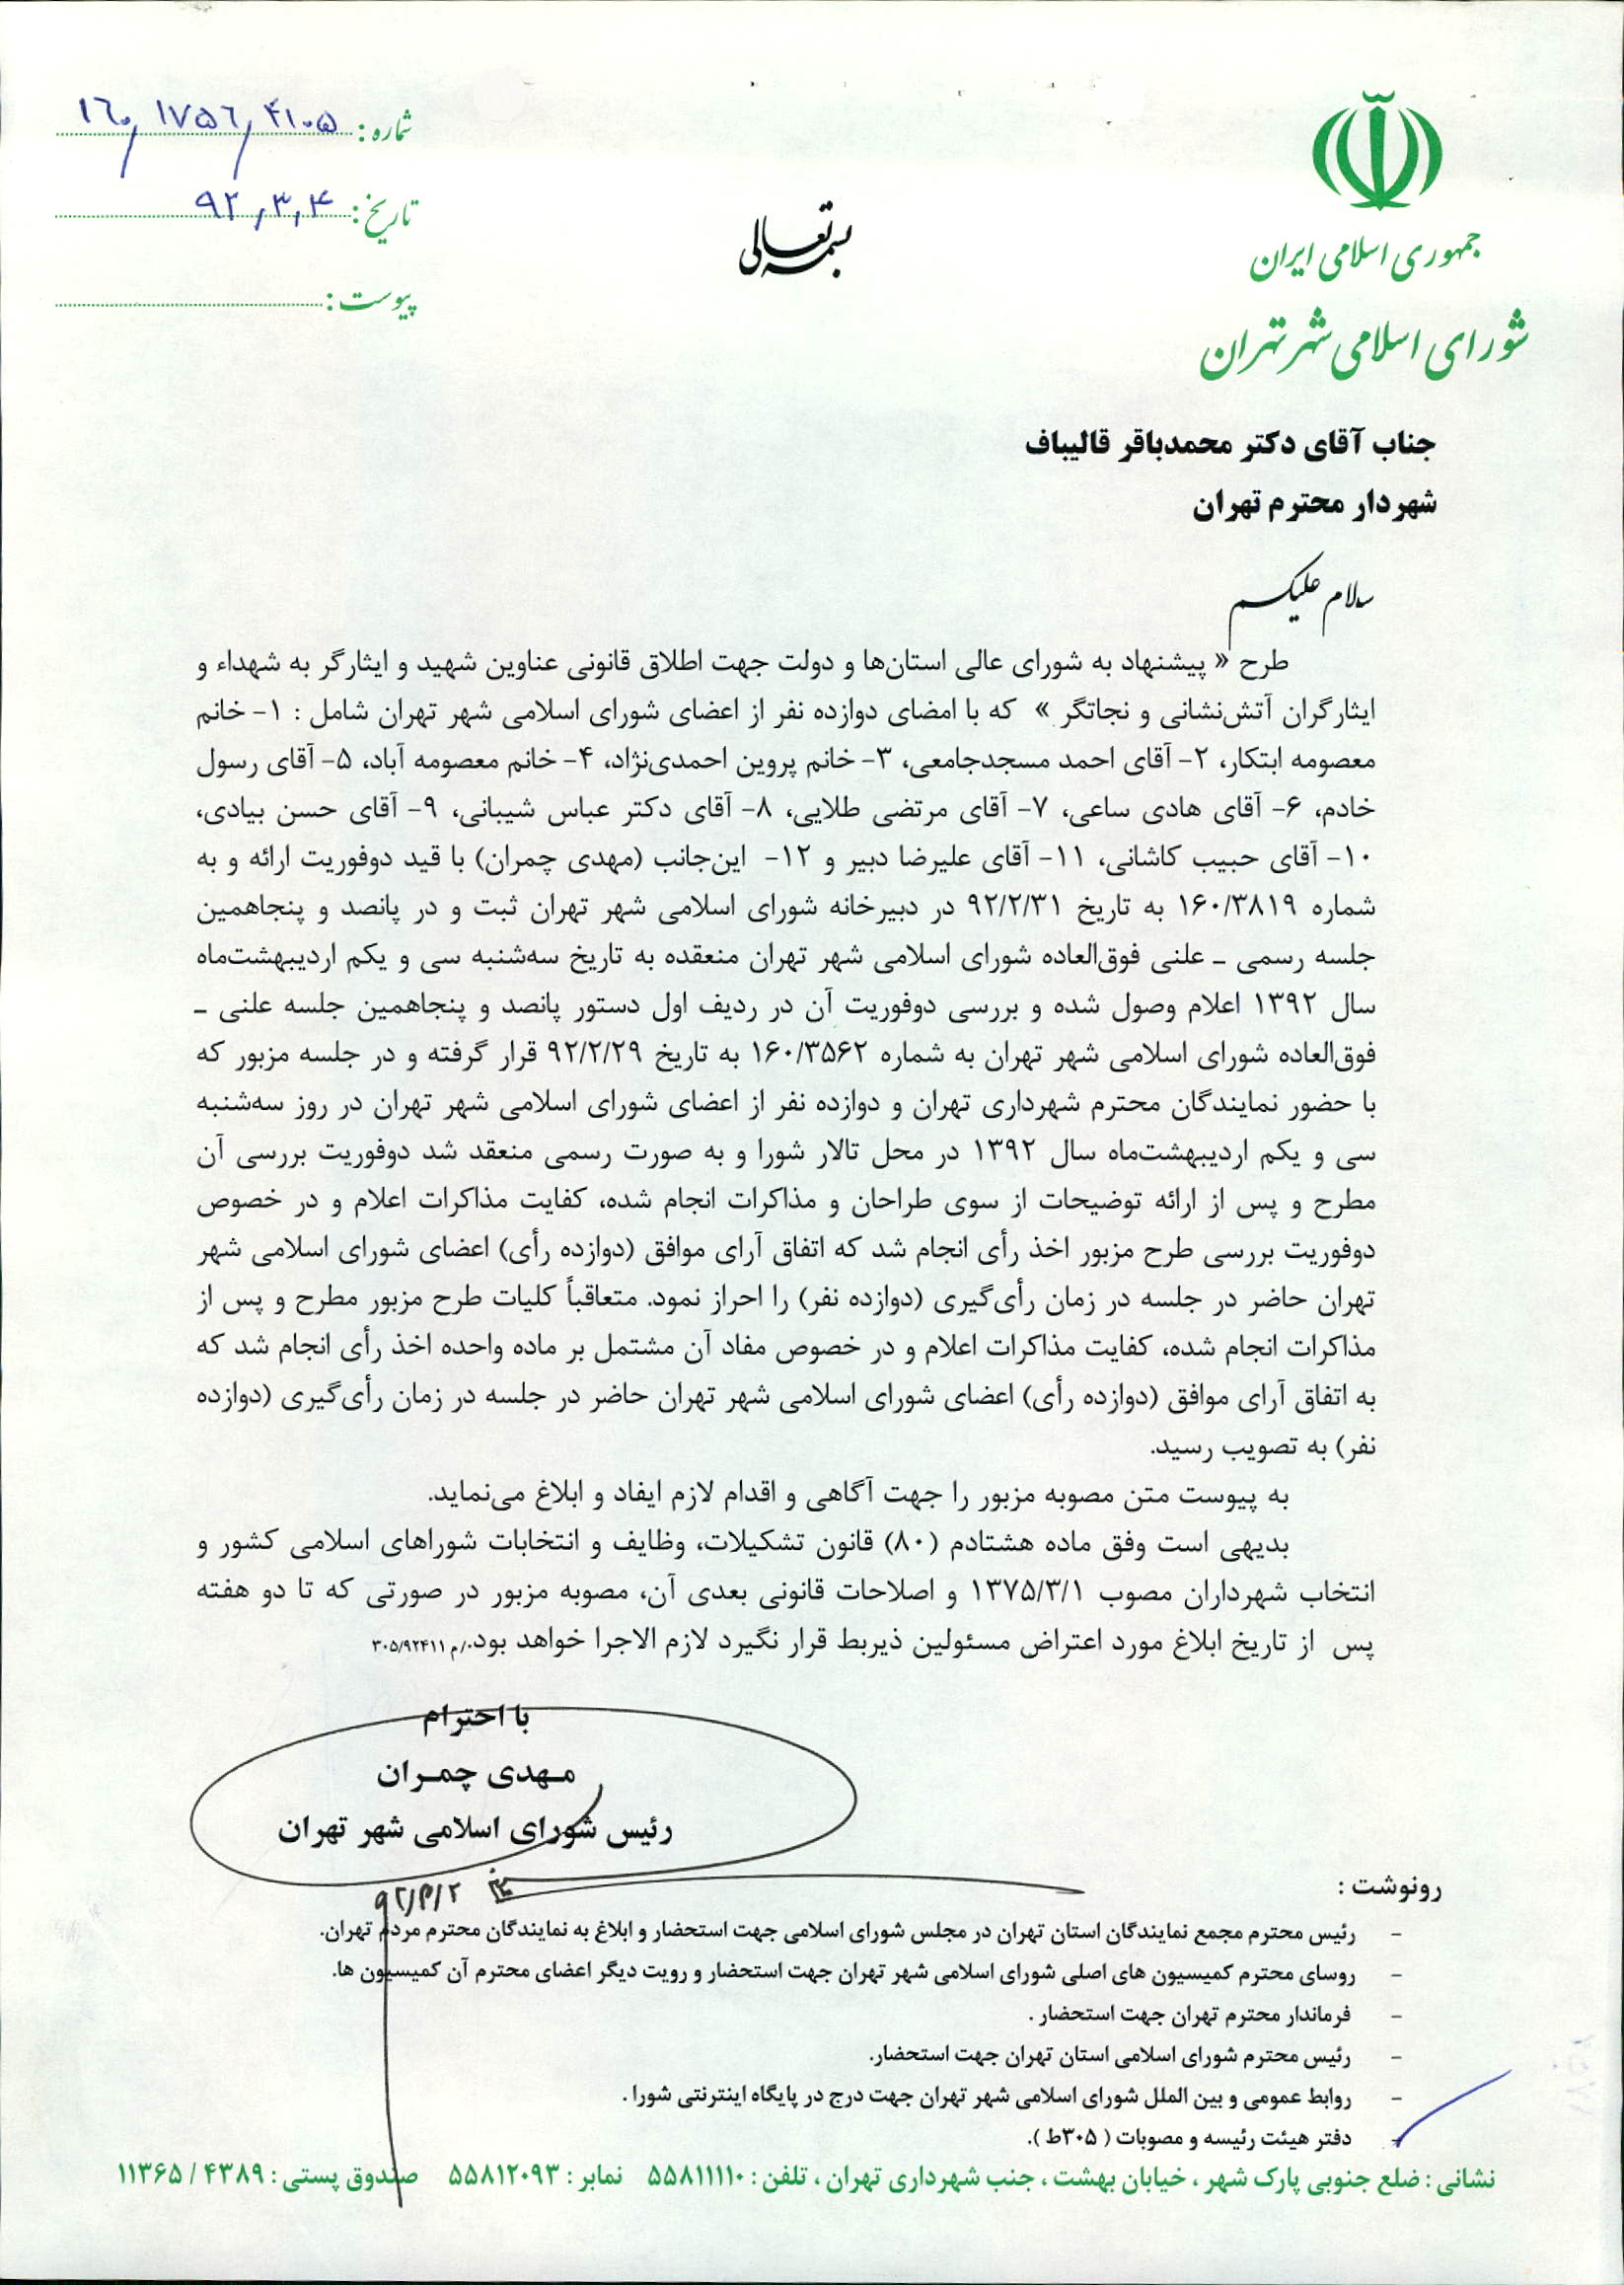 شماره: ۱۶۰/۱۷۵۶/۴۱۰۵
تاریخ: ۹۲/۳/۴
پیوست:
بسمه تعالی
جمهوری اسلامی ایران
شورای اسلامی شهر تهران
جناب آقای دکتر محمدباقر قالیباف
شهردار محترم تهران
سلام علیکم
طرح « پیشنهاد به شورای عالی استان‌ها و دولت جهت اطلاق قانونی عناوین شهید و ایثارگر به شهداء و
ایثارگران آتش‌نشانی و نجاتگر » که با امضای دوازده نفر از اعضای شورای اسلامی شهر تهران شامل : ۱- خانم
معصومه ابتکار، ۲- آقای احمد مسجدجامعی، ۳- خانم پروین احمدی‌نژاد، ۴- خانم معصومه آباد، ۵- آقای رسول
خادم، ۶- آقای هادی ساعی، ۷- آقای مرتضی طلایی، ۸- آقای دکتر عباس شیبانی، ۹- آقای حسن بیادی،
۱۰- آقای حبیب کاشانی، ۱۱- آقای علیرضا دبیر و ۱۲- این‌جانب (مهدی چمران) با قید دوفوریت ارائه و به
شماره ۱۶۰/۳۸۱۹ به تاریخ ۹۲/۲/۳۱ در دبیرخانه شورای اسلامی شهر تهران ثبت و در پانصد و پنجاهمین
جلسه رسمی ـ علنی فوق‌العاده شورای اسلامی شهر تهران منعقده به تاریخ سه‌شنبه سی و یکم اردیبهشت‌ماه
سال ۱۳۹۲ اعلام وصول شده و بررسی دوفوریت آن در ردیف اول دستور پانصد و پنجاهمین جلسه علنی ـ
فوق‌العاده شورای اسلامی شهر تهران به شماره ۱۶۰/۳۵۶۲ به تاریخ ۹۲/۲/۲۹ قرار گرفته و در جلسه مزبور که
با حضور نمایندگان محترم شهرداری تهران و دوازده نفر از اعضای شورای اسلامی شهر تهران در روز سه‌شنبه
سی و یکم اردیبهشت‌ماه سال ۱۳۹۲ در محل تالار شورا و به صورت رسمی منعقد شد دوفوریت بررسی آن
مطرح و پس از ارائه توضیحات از سوی طراحان و مذاکرات انجام شده، کفایت مذاکرات اعلام و در خصوص
دوفوریت بررسی طرح مزبور اخذ رأی انجام شد که اتفاق آرای موافق (دوازده رأی) اعضای شورای اسلامی شهر
تهران حاضر در جلسه در زمان رأی‌گیری (دوازده نفر) را احراز نمود. متعاقباً کلیات طرح مزبور مطرح و پس از
مذاکرات انجام شده، کفایت مذاکرات اعلام و در خصوص مفاد آن مشتمل بر ماده واحده اخذ رأی انجام شد که
به اتفاق آرای موافق (دوازده رأی) اعضای شورای اسلامی شهر تهران حاضر در جلسه در زمان رأی‌گیری (دوازده
نفر) به تصویب رسید.
به پیوست متن مصوبه مزبور را جهت آگاهی و اقدام لازم ایفاد و ابلاغ می‌نماید.
بدیهی است وفق ماده هشتادم (۸۰) قانون تشکیلات، وظایف و انتخابات شوراهای اسلامی کشور و
انتخاب شهرداران مصوب ۱۳۷۵/۳/۱ و اصلاحات قانونی بعدی آن، مصوبه مزبور در صورتی که تا دو هفته
پس از تاریخ ابلاغ مورد اعتراض مسئولین ذیربط قرار نگیرد لازم الاجرا خواهد بود./م ۳۰۵/۹۲۴۱۱
با احترام
مهدی چمران
رئیس شورای اسلامی شهر تهران
۹۲/۳/۲
رونوشت :
- رئیس محترم مجمع نمایندگان استان تهران در مجلس شورای اسلامی جهت استحضار و ابلاغ به نمایندگان محترم مردم تهران.
- روسای محترم کمیسیون های اصلی شورای اسلامی شهر تهران جهت استحضار و رویت دیگر اعضای محترم آن کمیسیون ها.
- فرماندار محترم تهران جهت استحضار .
- رئیس محترم شورای اسلامی استان تهران جهت استحضار.
- روابط عمومی و بین الملل شورای اسلامی شهر تهران جهت درج در پایگاه اینترنتی شورا .
- دفتر هیئت رئیسه و مصوبات ( ۳۰۵ط ).
نشانی : ضلع جنوبی پارک شهر ، خیابان بهشت ، جنب شهرداری تهران ، تلفن : ۵۵۸۱۱۱۱۰ نمابر : ۵۵۸۱۲۰۹۳ صندوق پستی : ۴۳۸۹ / ۱۱۳۶۵